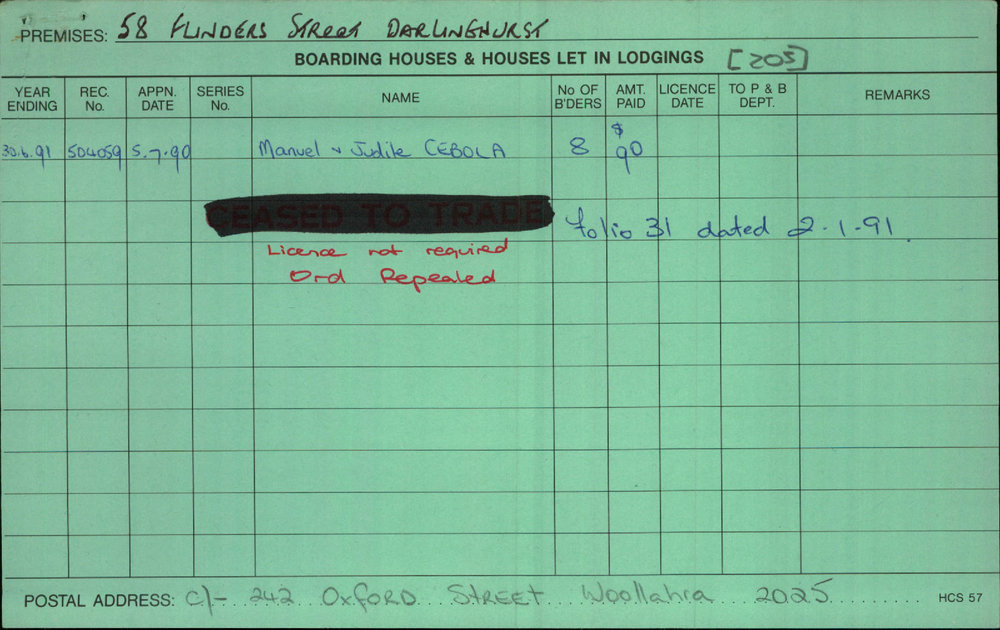 PREMISES: 58 FLINDERS STREET DARLINGHURST
BOARDING HOUSES & HOUSES LET IN LODGINGS [205]
YEAR ENDING REC. No. APPN. DATE SERIES No. NAME No OF B'DERS AMT. PAID LICENCE DATE TO P & B DEPT. REMARKS
30.6.91 504059 5.7.90 Manuel & Judite CEBOLA 8 $90
CEASED TO TRADE folio 31 dated 2.1.91.
Licence not required
Ord Repealed
POSTAL ADDRESS: C/- 242 OXFORD STREET Woollahra 2025 HCS 57